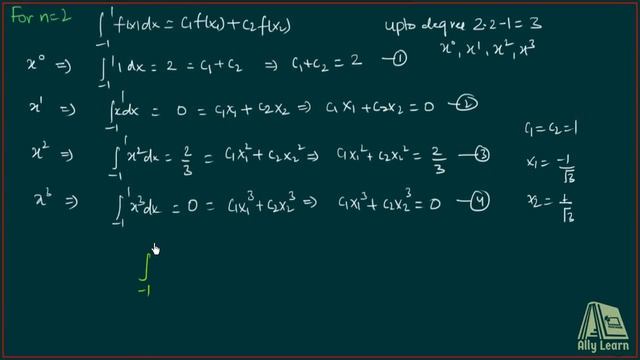 For n=2
∫_{-1}^{1} f(x)dx = c₁f(x₁) + c₂f(x₂)
upto degree 2·2-1 = 3
x⁰, x¹, x², x³
x⁰ ⇒ ∫_{-1}^{1} 1 dx = 2 = c₁+c₂ ⇒ c₁+c₂ = 2 —①
x¹ ⇒ ∫_{-1}^{1} x dx = 0 = c₁x₁ + c₂x₂ ⇒ c₁x₁+c₂x₂ = 0 —②
x² ⇒ ∫_{-1}^{1} x²dx = 2/3 = c₁x₁² + c₂x₂² ⇒ c₁x₁²+c₂x₂² = 2/3 —③
x³ ⇒ ∫_{-1}^{1} x³dx = 0 = c₁x₁³ + c₂x₂³ ⇒ c₁x₁³+c₂x₂³ = 0 —④
c₁ = c₂ = 1
x₁ = -1/√3
x₂ = 1/√3
∫_{-1}
Ally Learn